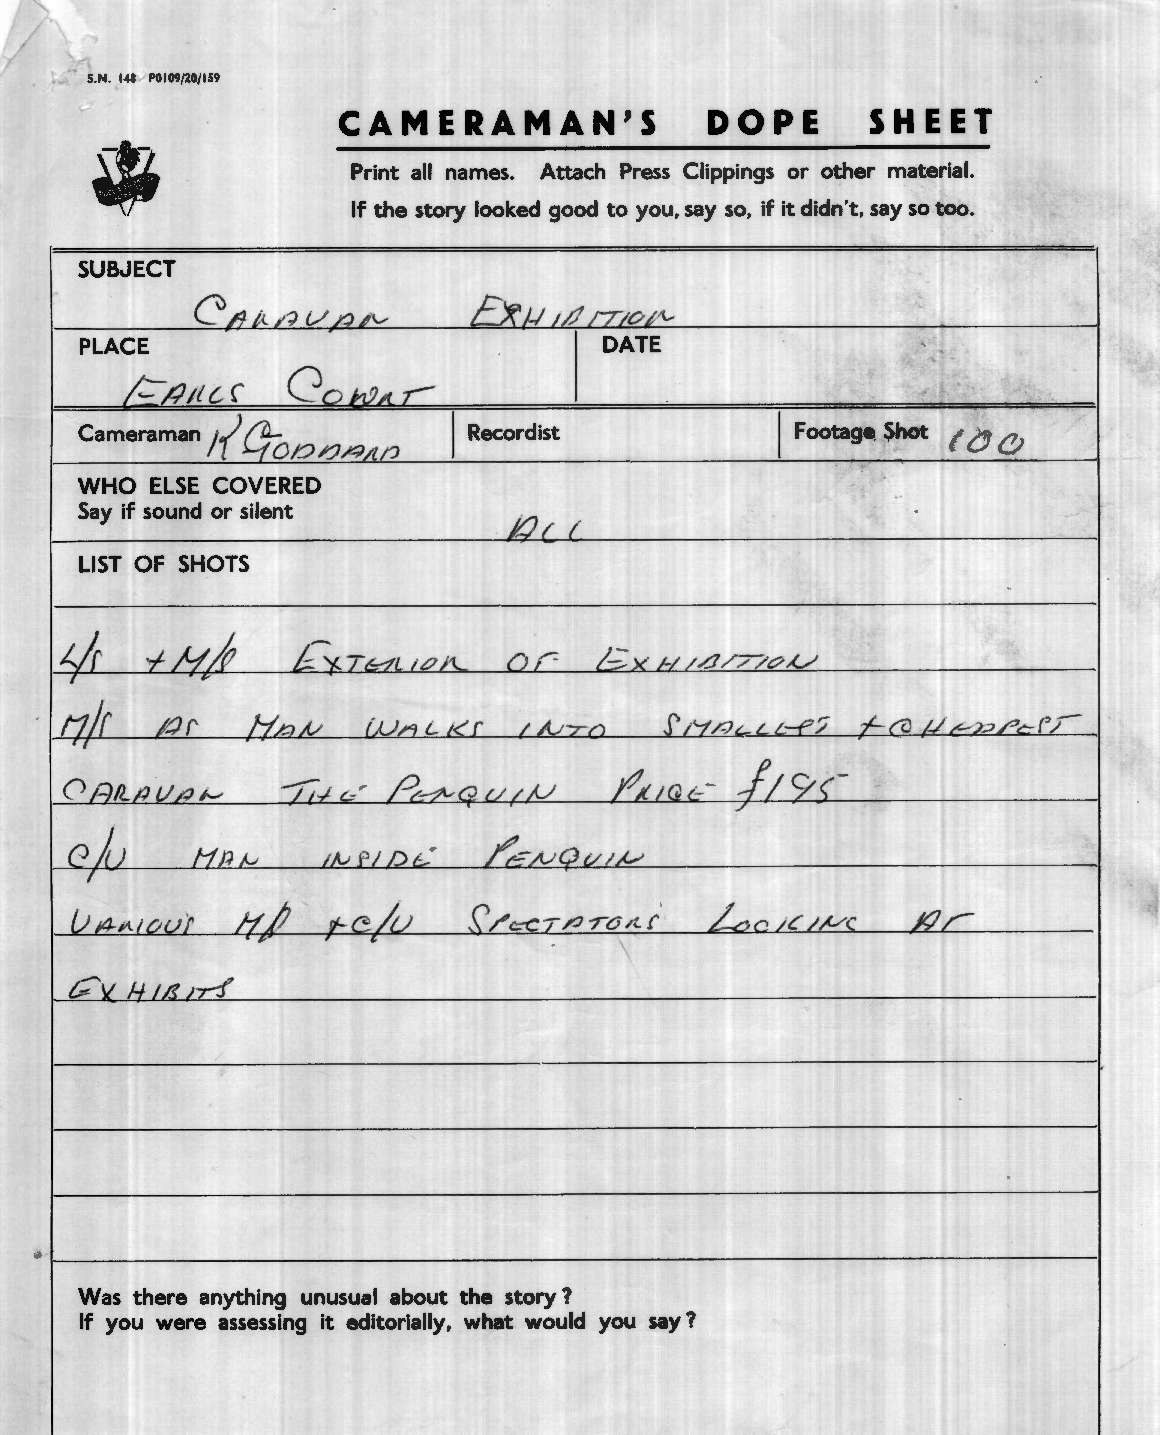 S.N. 148 P0109/20/159
CAMERAMAN'S DOPE SHEET
Print all names. Attach Press Clippings or other material.
If the story looked good to you, say so, if it didn't, say so too.
SUBJECT
CARAVAN EXHIBITION
PLACE DATE
EARLS COURT
Cameraman K GODDARD Recordist Footage Shot 100
WHO ELSE COVERED
Say if sound or silent
ALL
LIST OF SHOTS
L/S + M/S EXTERIOR OF EXHIBITION
M/S AS MAN WALKS INTO SMALLEST + CHEAPEST
CARAVAN THE PENQUIN PRICE £195
C/U MAN INSIDE PENQUIN
VARIOUS M/S + C/U SPECTATORS LOOKING AT
EXHIBITS
Was there anything unusual about the story?
If you were assessing it editorially, what would you say?